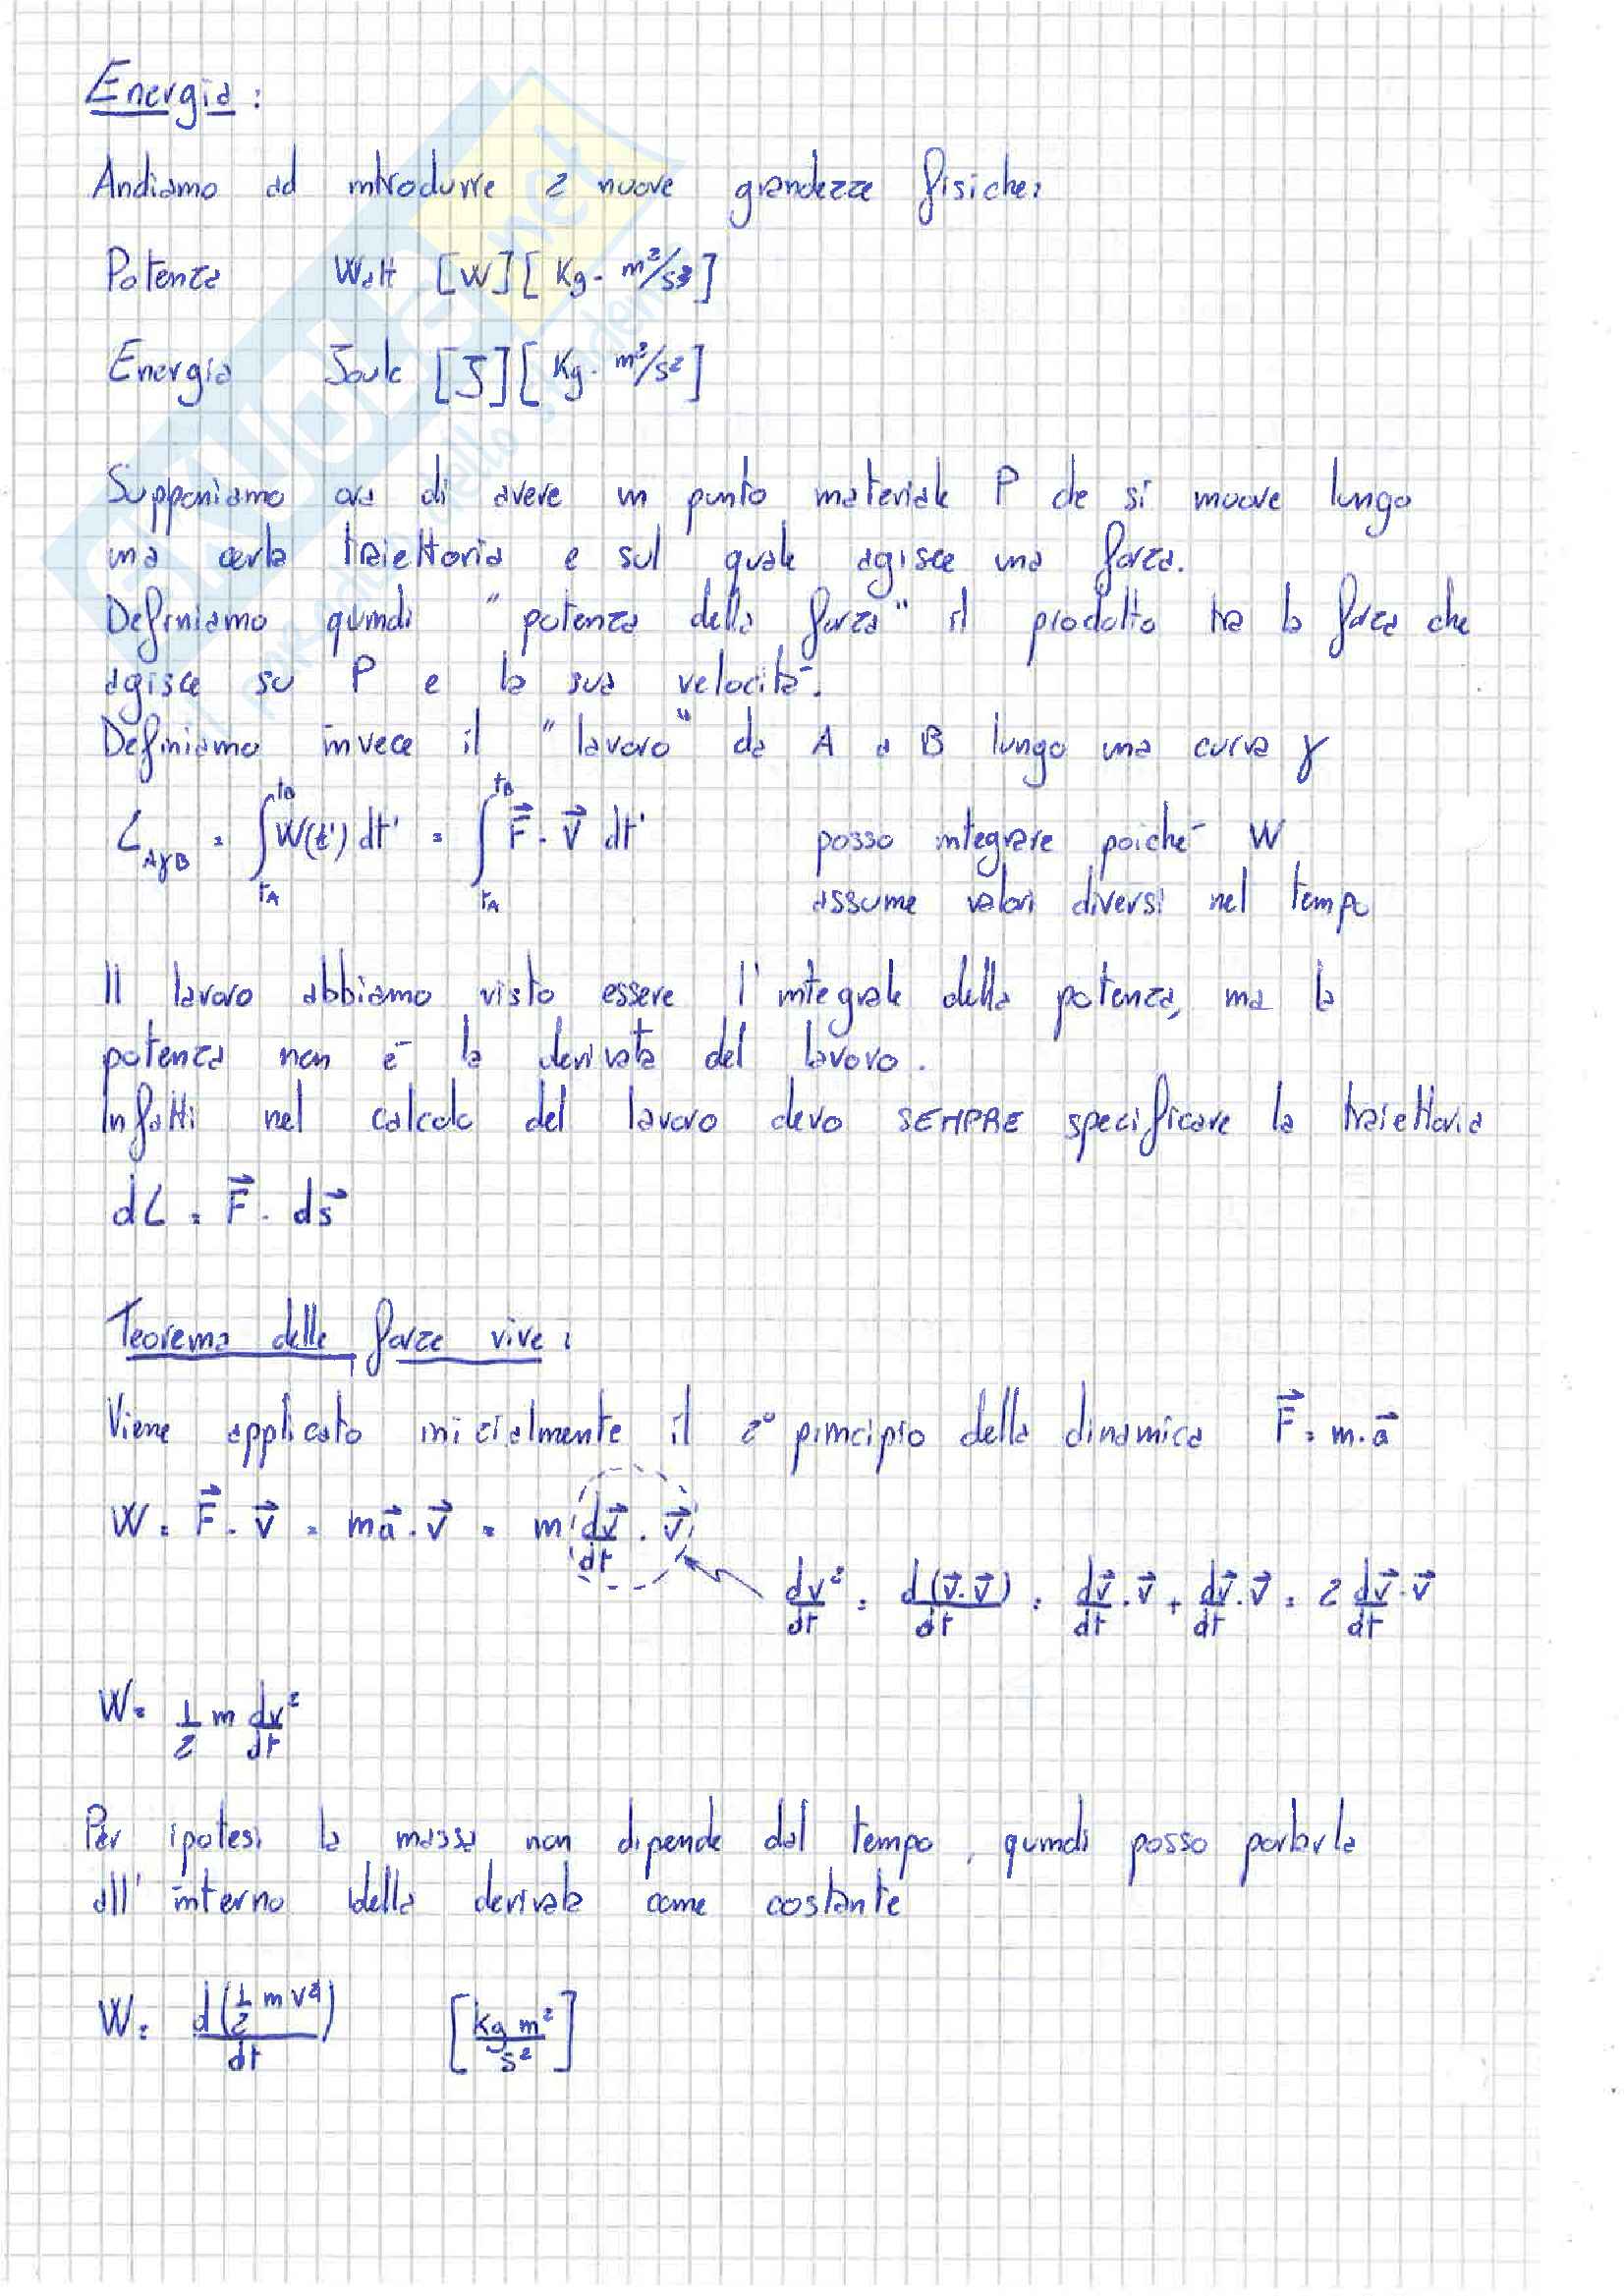 Energia:
Andiamo ad introdurre 2 nuove grandezze fisiche:
Potenza Watt [W] [Kg · m²/s³]
Energia Joule [J] [Kg · m²/s²]
Supponiamo ora di avere un punto materiale P che si muove lungo
una certa traiettoria e sul quale agisce una forza.
Definiamo quindi "potenza della forza" il prodotto tra la forza che
agisce su P e la sua velocità.
Definiamo invece il "lavoro" da A a B lungo una curva γ
L_AγB = ∫_{tA}^{tB} W(t') dt' = ∫_{tA}^{tB} F⃗ · v⃗ dt' posso integrare poiché W
assume valori diversi nel tempo
Il lavoro abbiamo visto essere l'integrale della potenza, ma la
potenza non è la derivata del lavoro.
Infatti nel calcolo del lavoro devo SEMPRE specificare la traiettoria
dL = F⃗ · ds⃗
Teorema delle forze vive:
Viene applicato inizialmente il 2° principio della dinamica F⃗ = m · a⃗
W = F⃗ · v⃗ = m a⃗ · v⃗ = m dv⃗/dt · v⃗
dv²/dt = d(v⃗·v⃗)/dt = dv⃗/dt · v⃗ + dv⃗/dt · v⃗ = 2 dv⃗/dt · v⃗
W = 1/2 m dv²/dt
Per ipotesi la massa non dipende dal tempo, quindi posso portarla
all'interno della derivata come costante
W = d(1/2 m v²)/dt [kg m²/s²]